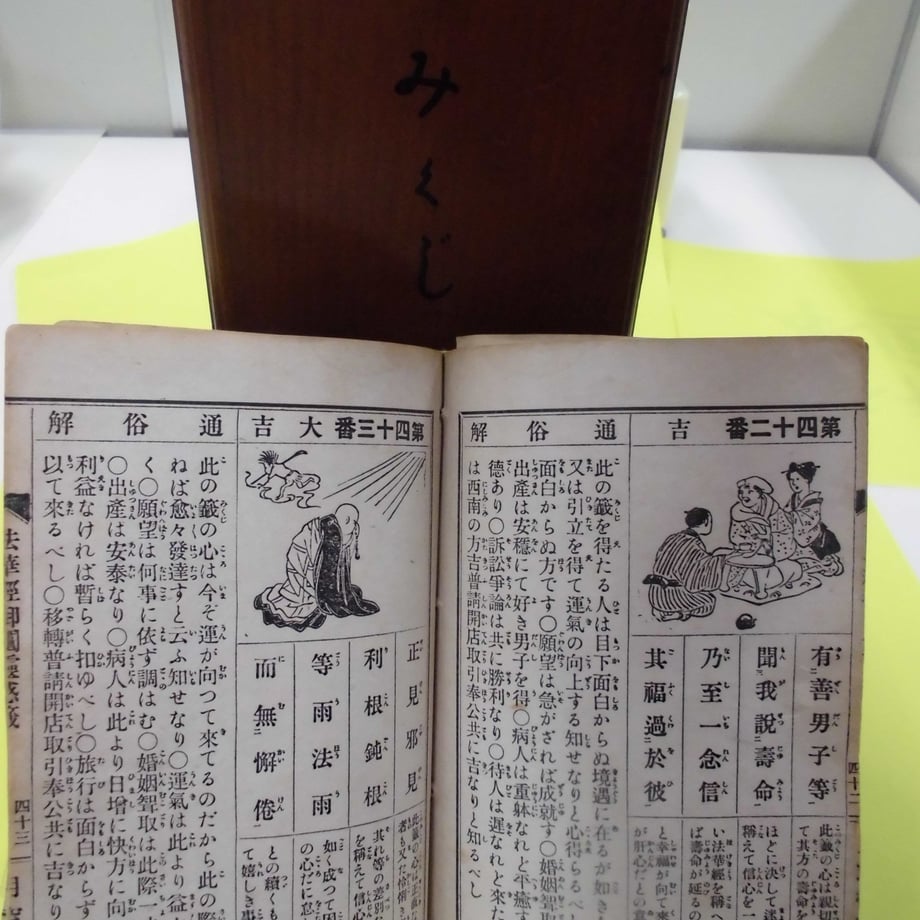 みくじ
第四十二番　吉
有善男子等
聞我說壽命
乃至一念信
其福過於彼
此籤の心は親
て其方の壽命を
ほとに決して迷
稱えて信心を一
い法華經を稱
ば壽命が延るの
と幸福が向て來
が肝心だとの意
通俗解
此の籤を得たる人は目下面白からぬ境遇に在るが如き
又は引立を得て運氣の向上する知せなりと心得らるべ
面白からぬ方です〇願望は急がざれば成就す〇婚姻聟
出產は安穩にて好き男子を得〇病人は重躰なれと平癒す
德あり〇訴訟爭論は共に勝利なり〇待人は遲なれと來た
は西南の方吉普請開店取引奉公共に吉なりと知るべし
第四十三番　大吉
正見邪見
利根鈍根
等雨法雨
而無懈倦
此籤の心は正直な
者も又た怜悧
其れ等の差別
を稱えて信心
如く成つて因
の心だに怠
との續くも
て嬉しき事
通俗解
此の籤の心は今ぞ運が向つて來てるのだから此の際
ねば愈々發達すと云ふ知せなり〇運氣は此より益
く〇願望は何事に依ず調はむ〇婚姻聟取は此際一
〇出產は安泰なり〇病人は此より日增に快方に向
利益なければ暫らく扣ゆべし〇旅行は面白からず
以て來るべし〇移轉普請開店取引奉公共に吉なり
法華經御圖靈感籤
四十三